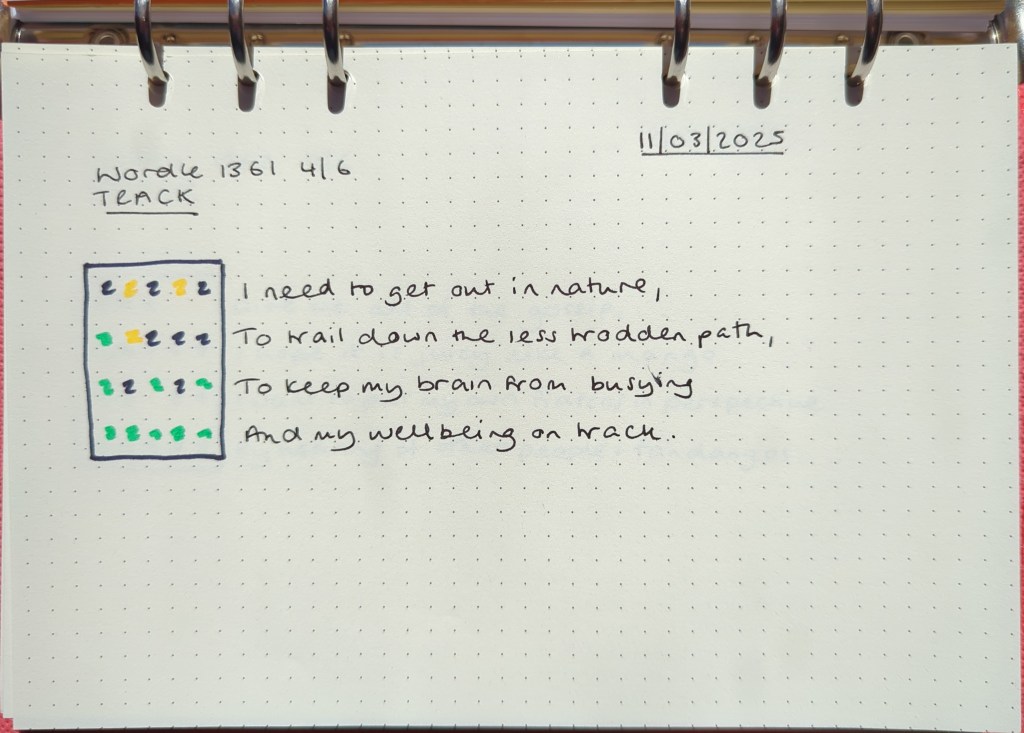 11/03/2025
Wordle 1361 4/6
TRACK
I need to get out in nature,
To trail down the less trodden path,
To keep my brain from busying
And my wellbeing on track.